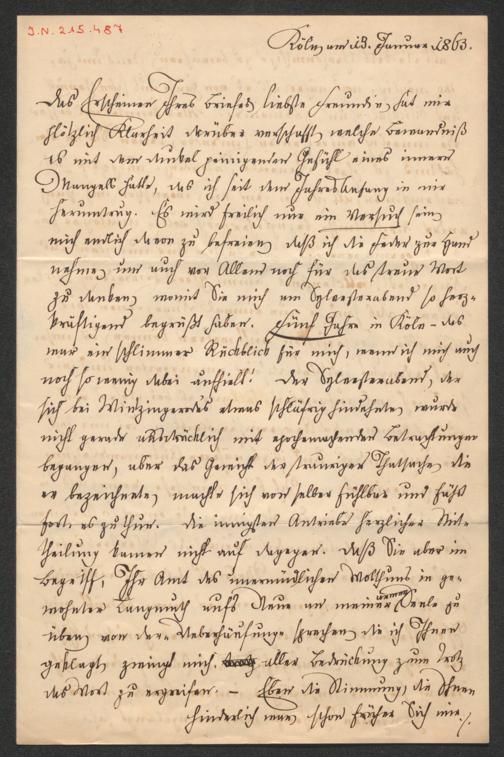 J.N. 215.487
Köln, am 13. Januar 1863.
Das Erscheinen Ihres Briefes, liebste Freundin, hat mir
plötzlich Klarheit darüber verschafft, welche Bewandniß
es mit dem dunkel peinigenden Gefühl eines innern
Mangels hatte, das ich seit dem Jahresanfang in mir
herumtrug. Es wird freilich nur ein Versuch sein
mich endlich davon zu befreien, daß ich die Feder zur Hand
nehme, um auch vor Allem noch für das treue Wort
zu danken, womit Sie mich am Sylvesterabend so herz-
kräftigend begrüßt haben. Fünf Jahre in Köln – das
war ein schlimmer Rückblick für mich, wenn ich mich auch
noch so wenig dabei aufhielt! Der Sylvesterabend, der
sich bei Wintzingerodes etwas schläfrig hindehnte, wurde
nicht gerade ausdrücklich mit epochemachenden Betrachtungen
begangen, aber das Gewicht der traurigen Thatsache, die
er bezeichnete, machte sich von selber fühlbar und fährt
fort es zu thun. Die innigsten Antriebe herzlicher Mit-
theilung kamen nicht auf dagegen. Daß Sie aber im
Begriff, Ihr Amt des unermüdlichen Wohlthuns in ge-
wohnter Langmuth aufs Neue an meiner armen Seele zu
üben, von der Ueberhäufung sprechen, die ich Ihnen
geklagt, zwingt mich, aller Bedrückung zum Trotz
das Wort zu ergreifen. – Eben die Stimmung, die Ihnen
hinderlich war, schon früher Sich mir